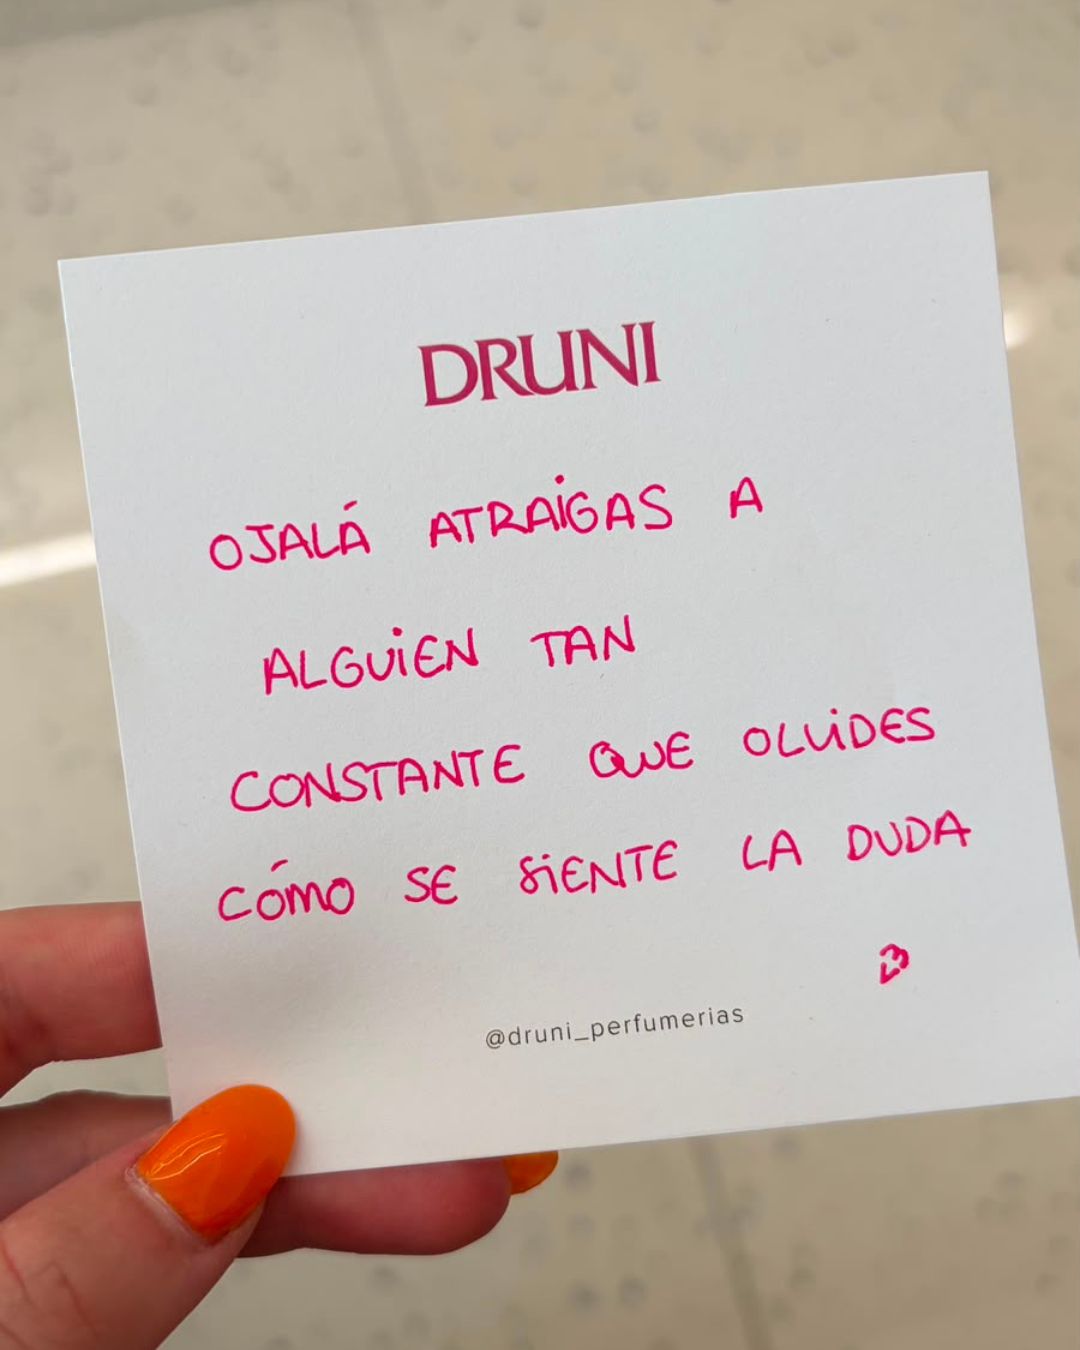 DRUNI
OJALÁ ATRAiGAS A
ALGUiEN TAN
CONSTANTE QUE OLViDES
CÓMO SE SiENTE LA DUDA
<3
@druni_perfumerias